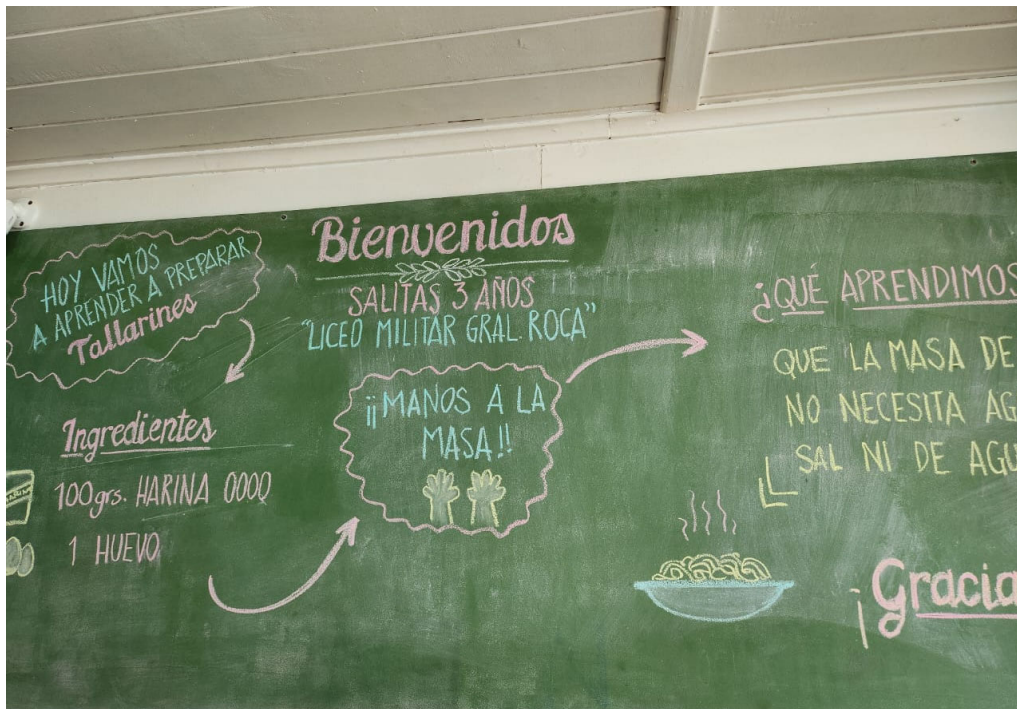 HOY VAMOS
A APRENDER A PREPARAR
Tallarines
Bienvenidos
SALITAS 3 AÑOS
"LICEO MILITAR GRAL. ROCA"
Ingredientes
100grs. HARINA 0000
1 HUEVO
¡¡MANOS A LA
MASA!!
¿QUÉ APRENDIMOS
QUE LA MASA DE
NO NECESITA
SAL NI DE